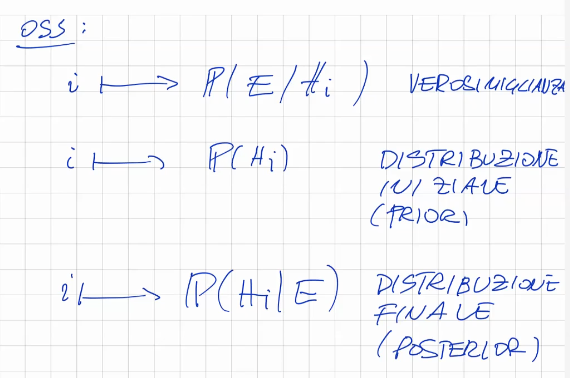 OSS :
i ⟼ P(E/Hi) VEROSIMIGLIANZA
i ⟼ P(Hi) DISTRIBUZIONE
INIZIALE
(PRIOR)
i ⟼ P(Hi|E) DISTRIBUZIONE
FINALE
(POSTERIOR)